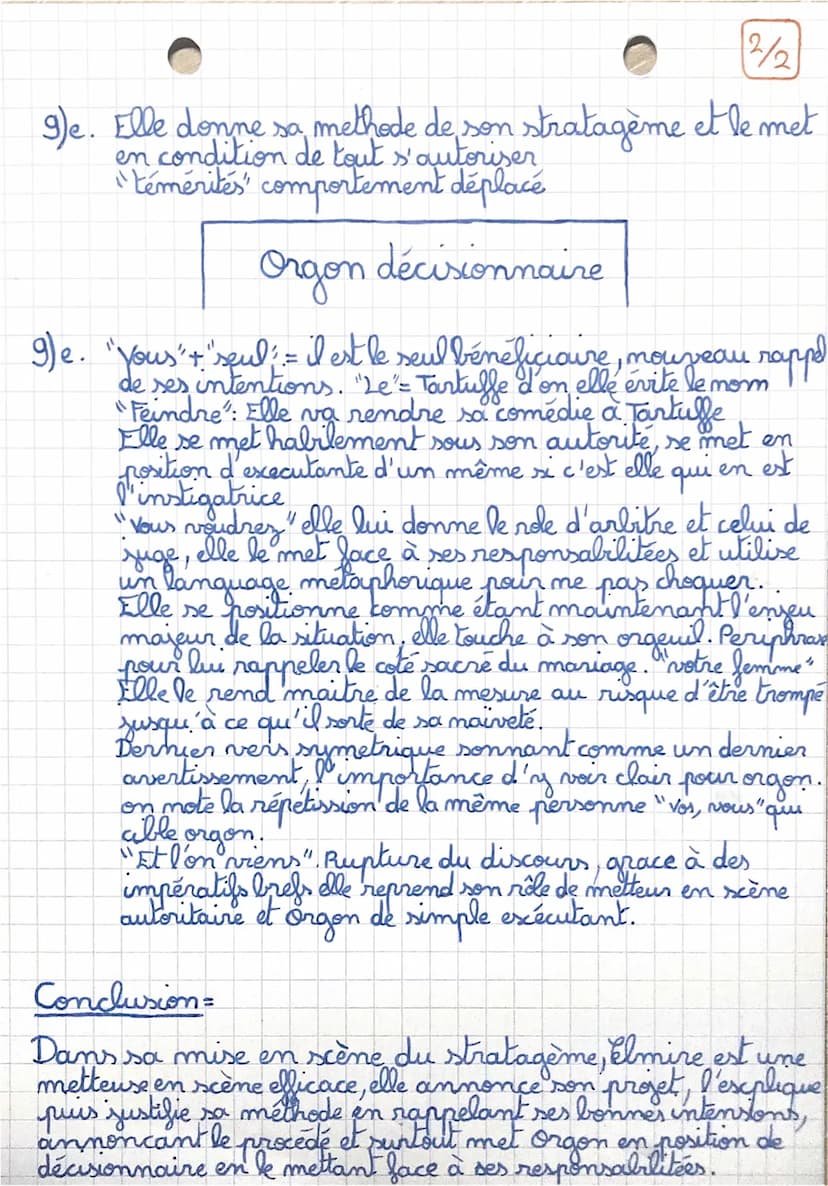 2/2
9)e. Elle donne sa methode de son stratagème et le met
en condition de tout s'autoriser
"témérités" comportement déplacé
Orgon décisionnaire
9)e. "Vous"+"seul"= il est le seul bénéficiaire, nouveau rappel
de ses intentions. "Le"= Tartuffe d'on elle évite le nom
"Feindre": Elle va rendre sa comédie à Tartuffe
Elle se met habilement sous son autorité, se met en
position d'executante d'un même si c'est elle qui en est
l'instigatrice
"Vous voudrez" elle lui donne le role d'arbitre et celui de
juge, elle le met face à ses responsabilitées et utilise
un language métaphorique pour ne pas choquer.
Elle se positionne comme étant maintenant l'enjeu
majeur de la situation, elle touche à son orgeuil. Periphrase
pour lui rappeler le coté sacré du mariage. "votre femme"
Elle le rend maitre de la mesure au risque d'être trompé
jusqu'à ce qu'il sorte de sa naïveté.
Dernier vers symetrique sonnant comme un dernier
avertissement, l'importance d'y voir clair pour orgon.
on note la répétission de la même personne "vos, vous" qui
cible orgon.
"Et l'on viens". Rupture du discours, grace à des
impératifs brefs elle reprend son rôle de metteur en scène
autoritaire et Orgon de simple exécutant.
Conclusion=
Dans sa mise en scène du stratagème, Elmire est une
metteuse en scène efficace, elle annonce son projet, l'esplique
puis justifie sa méthode en rappelant ses bonnes intensions,
annoncant le procédé et surtout met Orgon en position de
décisionnaire en le mettant face à ses responsabilitées.